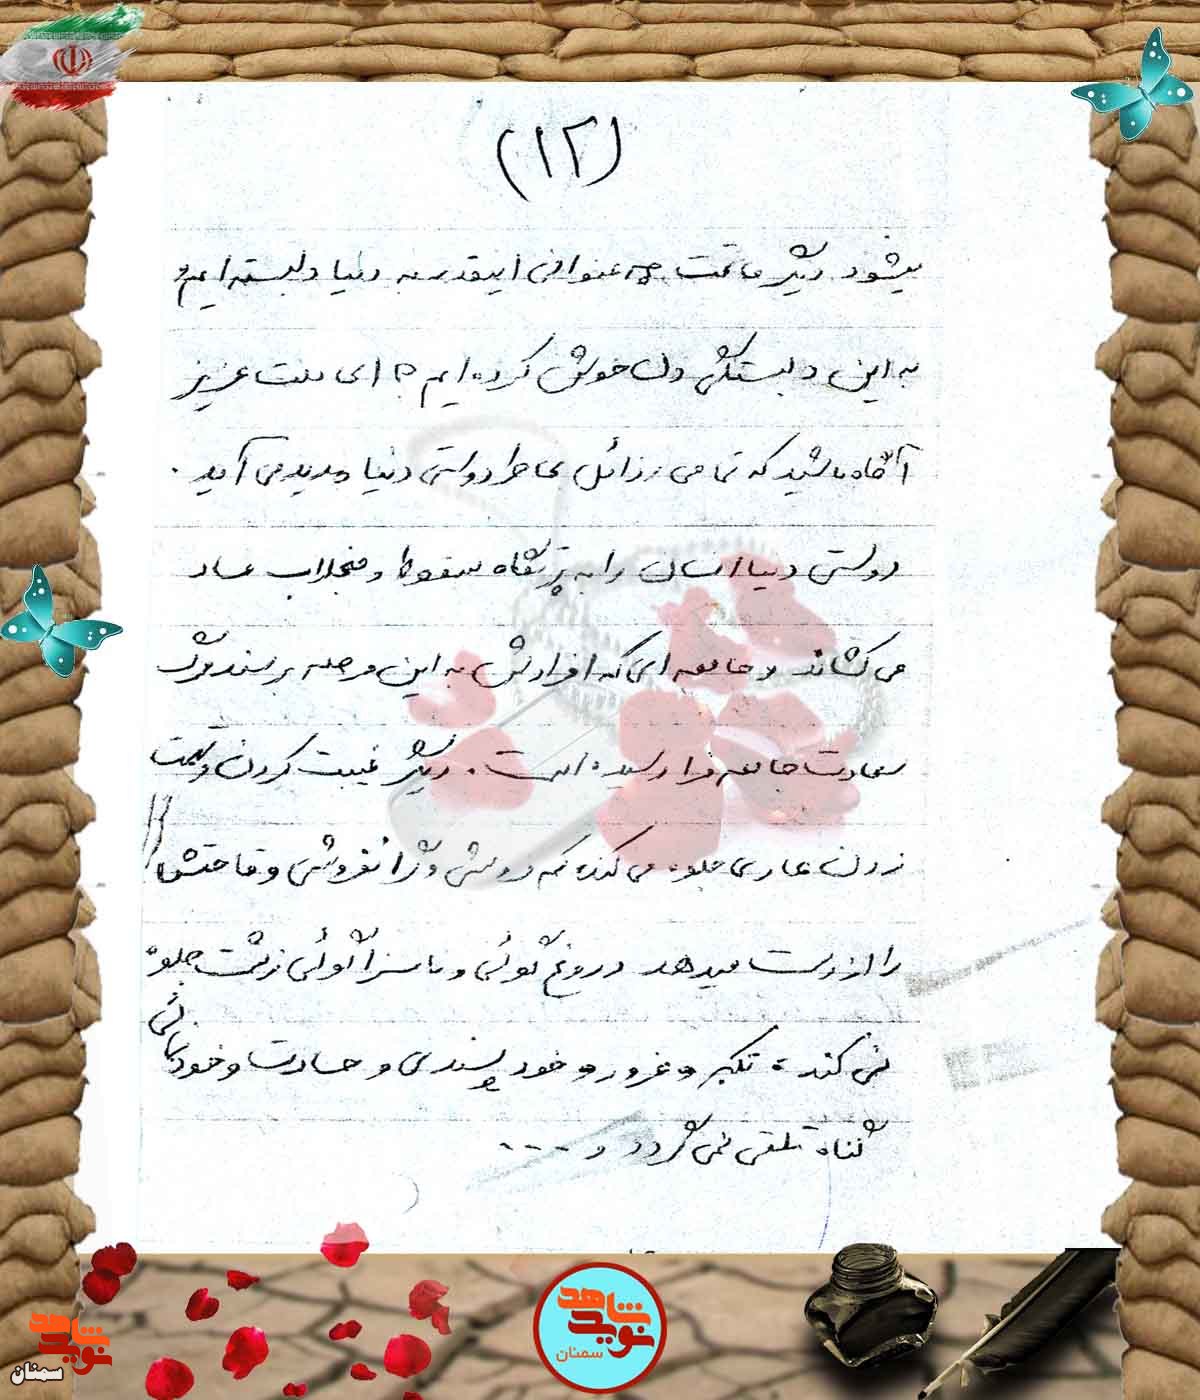 (۱۲)
میشود دیگر ما تحت چه عنوانی اینقدر به دنیا دلبسته ایم و
به این دلبستگی دل خوش کرده ایم ؟ ای ملت عزیز
آگاه باشید که تمامی رذائل بخاطر دوستی دنیا پدید می آید .
دوستی دنیا انسان را به پرتگاه سقوط و منجلاب فساد
می کشاند و جامعه ای که افرادش به این مرحله برسند مرگ
سعادت جامعه فرا رسیده است . دیگر غیبت کردن و تهمت
زدن عادی جلوه می کند، کم فروشی و گرانفروشی وقاحتش
را از دست میدهد دروغ گوئی و ناسزا گوئی زشت جلوه
نمی کند ، تکبر و غرور و خود پسندی و حسادت و خودنمائی
گناه تلقی نمی گردد و ....
نوید شاهد
سمنان
نوید شاهد
سمنان